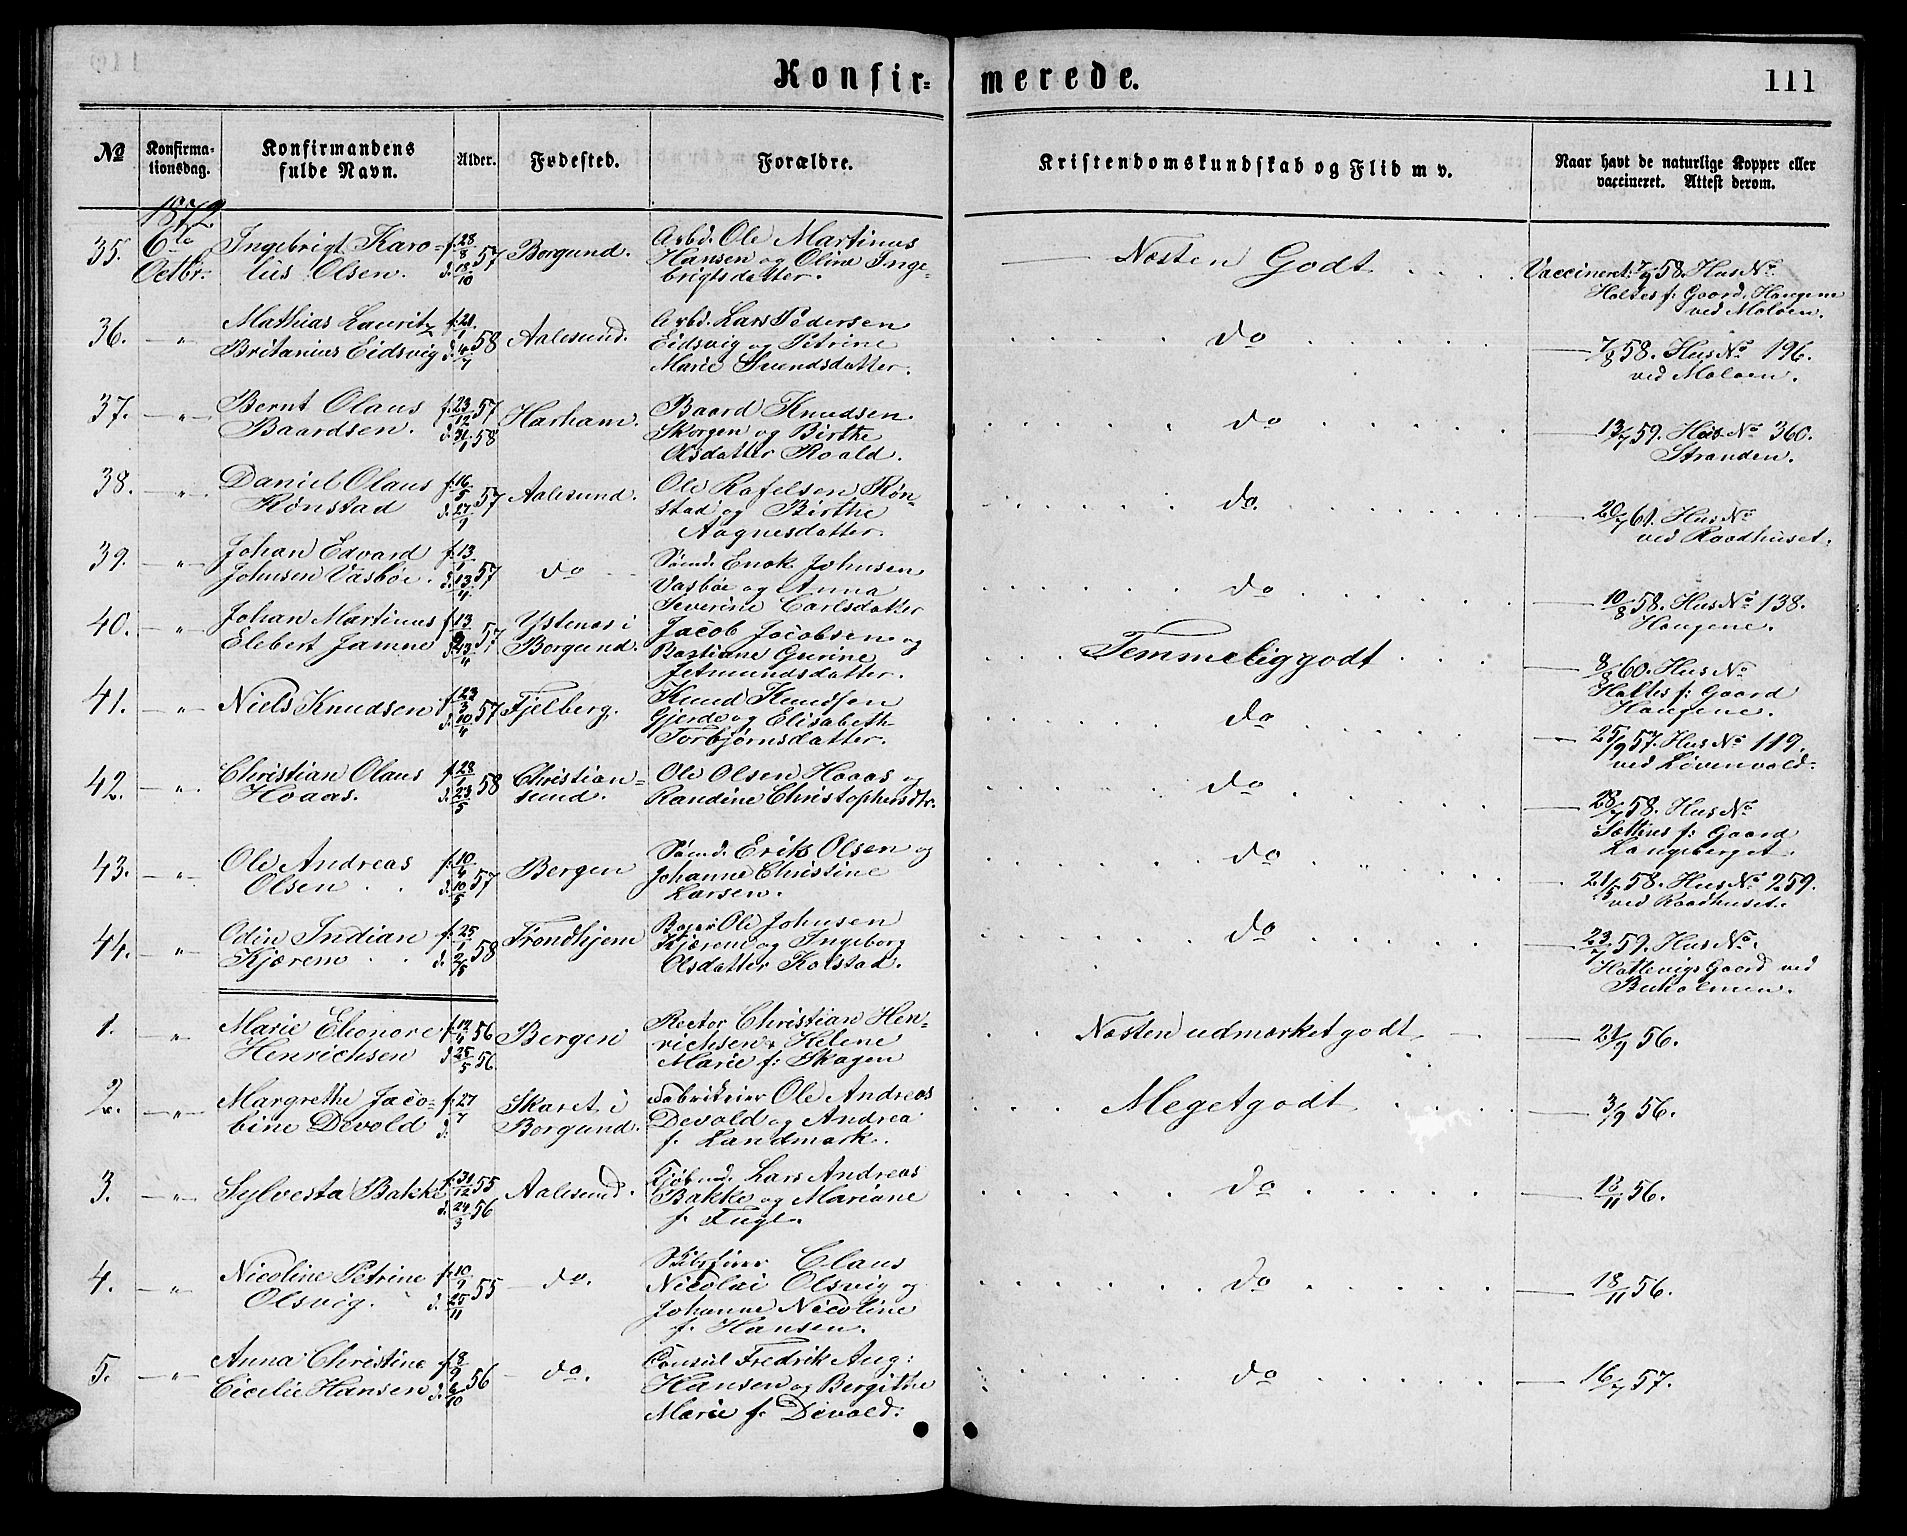 Konfir=merede.
111
№ | Konfirma-tionsdag. | Konfirmandens fulde Navn. | Alder. | Fødested. | Forældre. | Kristendomskundskab og Flid m v. | Naar havt de naturlige Kopper eller vaccineret. Attest derom.
1872
35. 6te Ingebrigt Karo= f. 28/8 57 Borgund. Arbd. Ole Martinus Næsten Godt Vaccineret 58. Hus No
Octbr: lius Olsen. d. 18/10 Hansen og Oline Inge= Holtes f: Gaard. Haugene
brigtsdatter. ved Moloen.
36. " Mathias Lauritz f. 21/1 58 Aalesund. Arbd. Lars Pedersen do 7/8 58. Hus No 196.
Britanius Eidsvig d. 4/7 Eidsvig og Petrine ved Moloen.
Marie Svendsdatter.
37. " Bernt Olaus f. 23/12 57 Harham. Baard Knudsen do 13/7 59. Hus No 360.
Baardsen. d. 31/1 58 Skorgen og Birthe Stranden.
Olsdatter Roald.
38. " Daniel Olaus f. 16/5 57 Aalesund. Ole Rafelsen Røn= do. 20/7 61. Hus No
Rønstad d. 27/9 stad og Birthe ved Raadhuset.
Aagnesdatter.
39. " Johan Edvard f. 13/1 57 do Sømd. Enok Johnsen do 10/8 58. Hus No 138.
Johnsen Vasbøe. d. 13/4 Vasbøe og Anna Haugene.
Severine Carlsdatter
40. " Johan Martinus f. 13 57 Ystenes i Jacob Jacobsen og Temmelig godt 8/8 60. Hus No
Elebert Jamne d. 13/4 Borgund. Bastiane Gurine Holtes f: Gaard
Jetmundsdatter. Haugene.
41. " Niels Knudsen f. 23/3 57 Fjelberg. Knud Knudsen do 25/9 57. Hus No 119.
d. 10/4 Gjerde og Elisabeth ved Løvenvold.
Torbjørnsdatter.
42. " Christian Olaus f. 28/1 58 Christian= Ole Olsen Hoaas og do 28/7 58. Hus No
Hoaas. d. 23/5 sund. Randine Christophersdtr. Sættins f: Gaard
Langeberget.
43. " Ole Andreas f. 10/4 57 Bergen Sømd. Erik Olsen og do 21/5 58. Hus No 259.
Olsen d. 10/5 Johanne Christine ved Raadhuset.
Larsen.
44. " Odin Indian f. 25/1 58 Trondhjem Ole Johnsen do 23/7 59. Hus No.
Kjærem d. 2/5 Kjærem og Ingeborg Hatlevigs Gaard ved
Olsdatter Kolstad. Buholmen.
1. " Marie Eleonore f. 12/4 56 Bergen Rector Christian Hen= Næsten udmærket godt 21/9 56.
Henrichsen d. 25/5 56 richsen & Helene
Marie f. Skagen
2. " Margrethe Jaco= f. 27/7 Skaret i Fabrikeier Ole Andreas Meget godt 3/9 56.
bine Devold d. Borgund. Devold og Andrea
f. Landmark.
3. " Sylvesta Bakke f. 31/12 55 Aalesund. Kjøbmd. Lars Andreas do 18/11 56.
d. 24/3 56 Bakke og Mariane
f. Fugl.
4. " Nicoline Petrine f. 10/9 55 do. Claus do 18/11 56.
Olsvig. d. 25/11 Nicolai Olsvig og
Johanne Nicoline
f. Hansen.
5. " Anna Christine f. 8/9 56 do. Consul Fredrik Aug: do 16/7 57.
Cicilie Hansen d. 6/10 Hansen og Bergithe
Marie f. Devold.